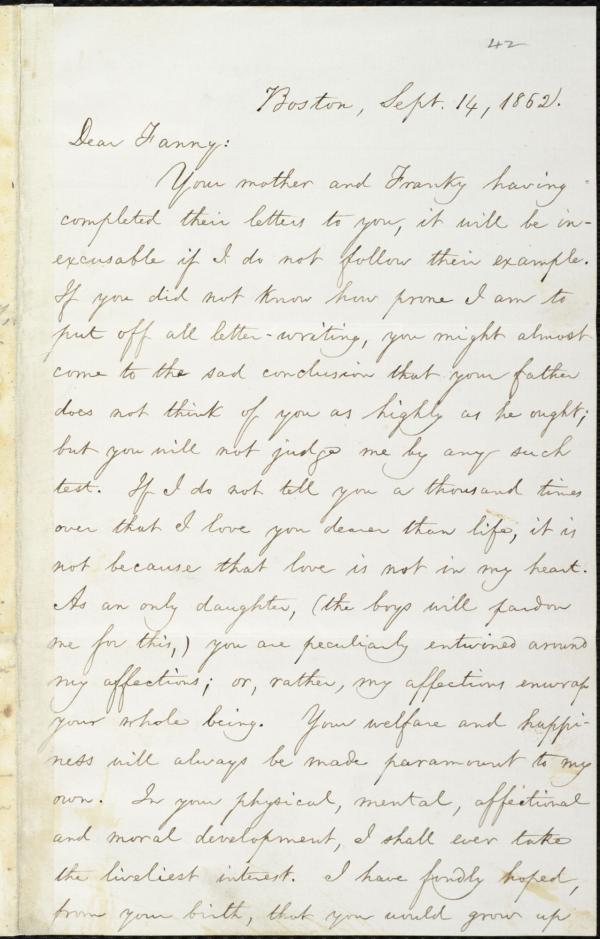 42
Boston, Sept. 14, 1862.
Dear Fanny:
Your mother and Franky having
completed their letters to you, it will be in-
excusable if I do not follow their example.
If you did not know how prone I am to
put off all letter-writing, you might almost
come to the sad conclusion that your father
does not think of you as highly as he ought;
but you will not judge me by any such
test. If I do not tell you a thousand times
over that I love you dearer than life, it is
not because that love is not in my heart.
As an only daughter, (the boys will pardon
me for this,) you are peculiarly entwined around
my affections; or, rather, my affections enwrap
your whole being. Your welfare and happi-
ness will always be made paramount to my
own. In your physical, mental, affectional
and moral development, I shall ever take
the liveliest interest. I have fondly hoped,
from your birth, that you would grow up